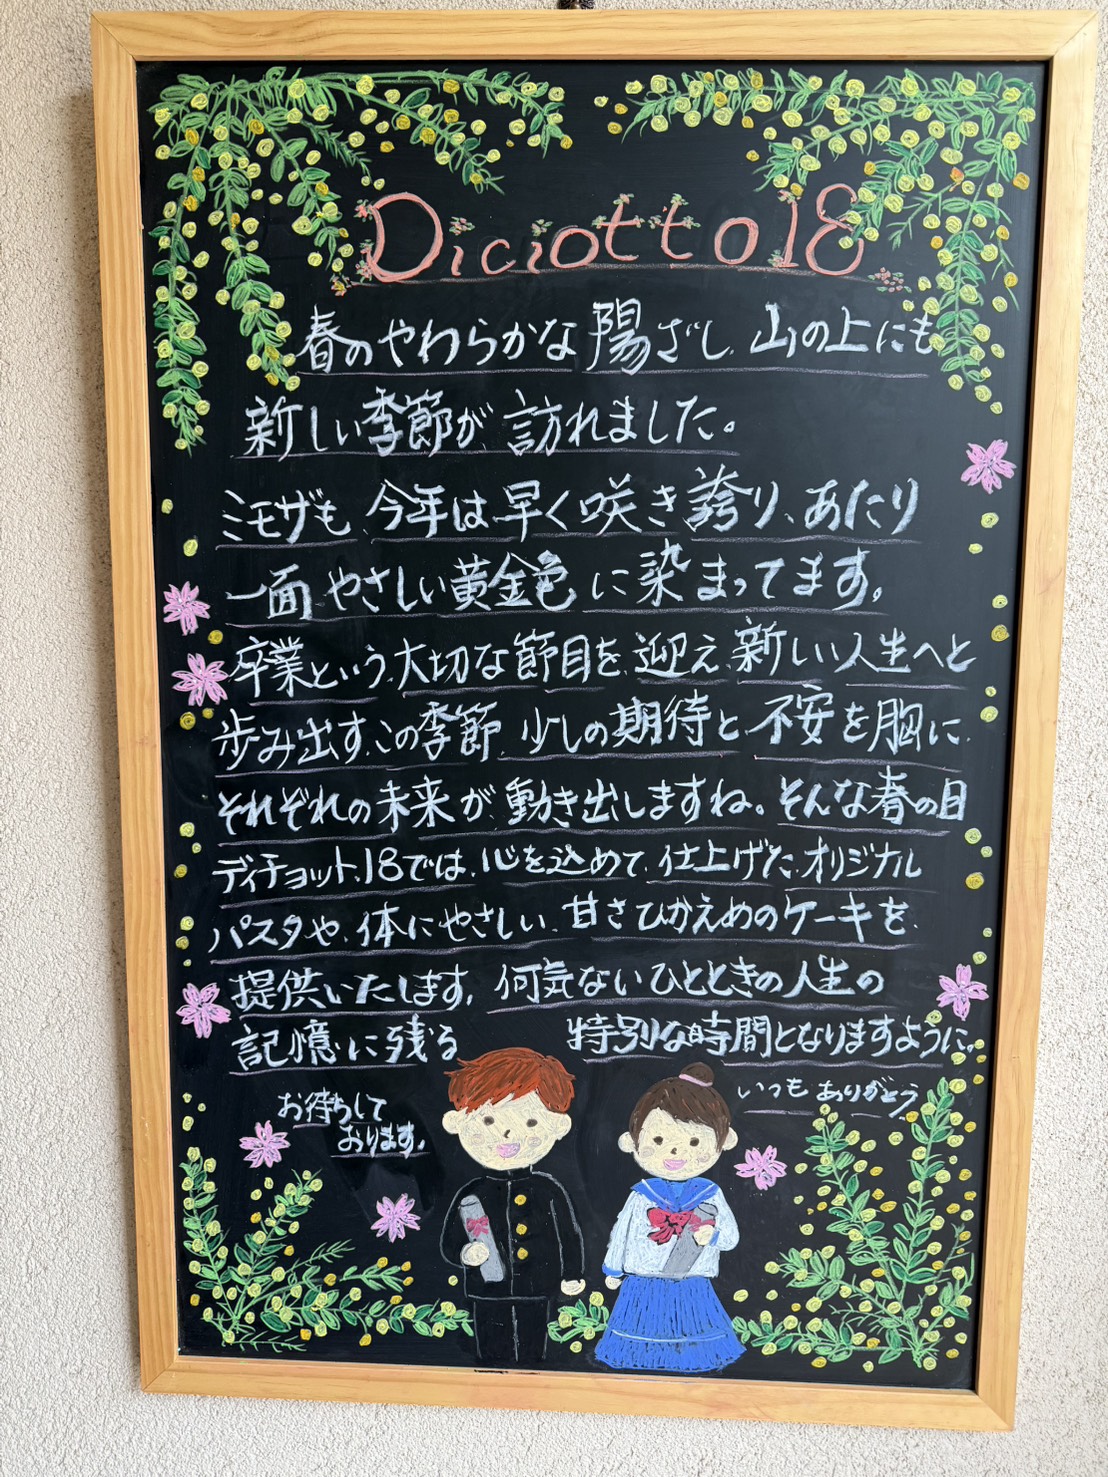 Diciotto18
春のやわらかな陽ざし、山の上にも
新しい季節が訪れました。
ミモザも、今年は早く咲き誇り、あたり
一面やさしい黄金色に染まってます。
卒業という、大切な節目を、迎え、新しい人生へと
歩み出す、この季節、少しの期待と、不安を胸に、
それぞれの未来が、動き出しますね。そんな春の日
ディチョット、18では、心を込めて、仕上げた、オリジナル
パスタや、体にやさしい、甘さひかえめのケーキを、
提供いたします。何気ないひとときの人生の
記憶に残る 特別な時間となりますように。
お待ちして
おります。
いつも ありがとう